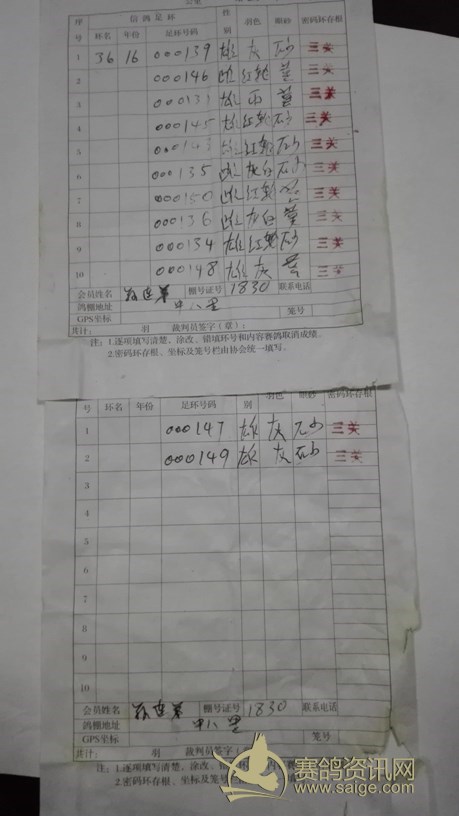 公里
序号 信鸽足环 性别 羽色 眼砂 密码环存根
环名 年份 足环号码
1 36 16 000139 雄 灰 砂 三关
2 000146 雌 红轮 黄 三关
3 000131 雄 雨 黄 三关
4 000145 雄 红轮 砂 三关
5 红轮 砂 三关
6 000135 雌 灰白 砂 三关
7 000150 雌 红轮 三关
8 000136 雌 灰白 黄 三关
9 000134 雄 红轮 砂 三关
10 000148 雄 灰 黄 三关
会员姓名 棚号证号 1830 联系电话
鸽棚地址 中八里
GPS坐标 笼号
其汁: 羽 裁判员签字(章):
注:1.逐项填写清楚、涂改、错填环号和内容赛鸽取消成绩。
2.密码环存根、坐标及笼号栏由协会统一填写。
号 环名 年份 足环号码 别 羽色 眼砂 密码环存根
1 000147 雄 灰 砂 三关
2 000149 雄 灰 砂 三关
3
4
5
6
7
8
9
10
会员姓名 棚号证号 1830 联系电话
鸽棚地址 中八里
GPS坐标 笼号
其汁: 羽 裁判员签字(章
注:1.逐项填写清楚、涂改、错
2.密码环存根、坐标及笼号
赛鸽资讯网
www.saige.com